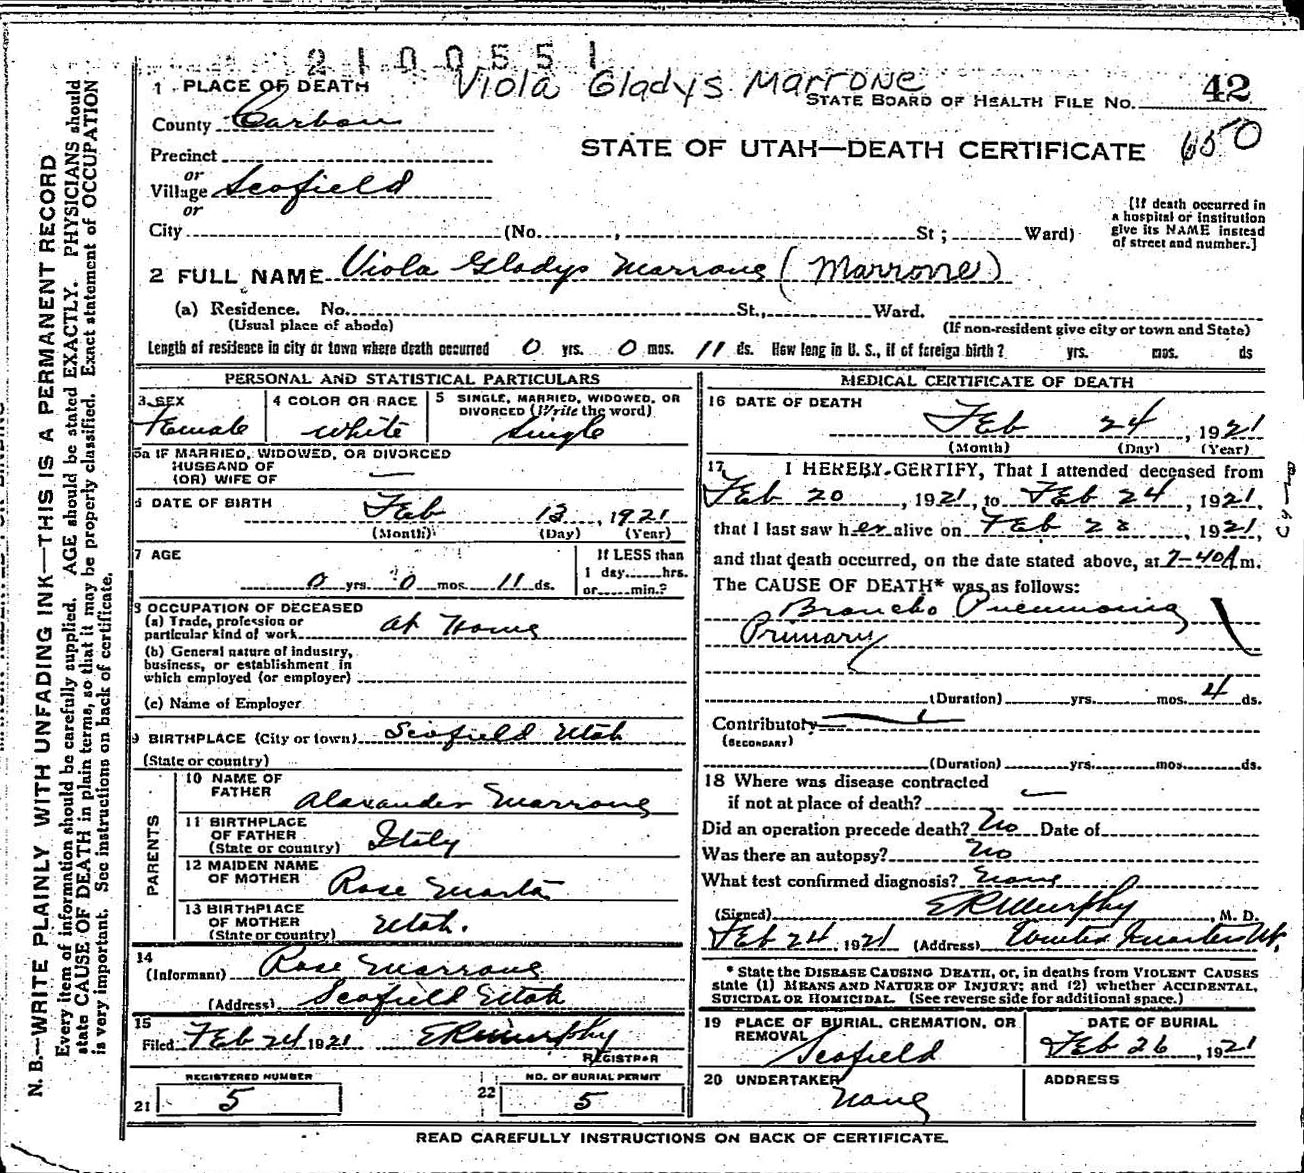 2100551
Viola Gladys Marrone
1 PLACE OF DEATH
STATE BOARD OF HEALTH FILE NO. 42
County Carbon
STATE OF UTAH—DEATH CERTIFICATE 650
Precinct
or
Village Scofield
or
City (No. , St ; Ward)
[If death occurred in
a hospital or institution
give its NAME instead
of street and number.]
2 FULL NAME Viola Gladys Marrone (Marrone)
(a) Residence. No. St., Ward.
(Usual place of abode) (If non-resident give city or town and State)
Length of residence in city or town where death occurred 0 yrs. 0 mos. 11 ds. How long in U. S., if of foreign birth? yrs. mos. ds
PERSONAL AND STATISTICAL PARTICULARS
3 SEX
Female
4 COLOR OR RACE
white
5 SINGLE, MARRIED, WIDOWED, OR
DIVORCED (Write the word)
Single
5a IF MARRIED, WIDOWED, OR DIVORCED
HUSBAND OF
(OR) WIFE OF
6 DATE OF BIRTH Feb 13, 1921
(Month) (Day) (Year)
7 AGE
0 yrs. 0 mos. 11 ds.
If LESS than
1 day......hrs.
or......min.?
8 OCCUPATION OF DECEASED
(a) Trade, profession or
particular kind of work at Home
(b) General nature of industry,
business, or establishment in
which employed (or employer)
(c) Name of Employer
9 BIRTHPLACE (City or town) Scofield Utah
(State or country)
PARENTS
10 NAME OF
FATHER Alexander Marrone
11 BIRTHPLACE
OF FATHER
(State or country) Italy
12 MAIDEN NAME
OF MOTHER Rose Marta
13 BIRTHPLACE
OF MOTHER
(State or country) Utah.
14
(Informant) Rose Marrone
(Address) Scofield Utah
15
Filed Feb 24 1921 E R Murphy
REGISTRAR
REGISTERED NUMBER
21 5
NO. OF BURIAL PERMIT
22 5
MEDICAL CERTIFICATE OF DEATH
16 DATE OF DEATH
Feb 24, 1921
(Month) (Day) (Year)
17 I HEREBY CERTIFY, That I attended deceased from
Feb 20, 1921, to Feb 24, 1921,
that I last saw her alive on Feb, 1921,
and that death occurred, on the date stated above, at 7-40A m.
The CAUSE OF DEATH* was as follows:
Broncho Pneumonia
Primary
(Duration) yrs. mos. 4 ds.
Contributory
(SECONDARY)
(Duration) yrs. mos. ds.
18 Where was disease contracted
if not at place of death?
Did an operation precede death? No Date of
Was there an autopsy? No
What test confirmed diagnosis? None
(Signed) E R Murphy, M. D.
Feb 24, 1921 (Address) Winter Quarters Ut.
* State the DISEASE CAUSING DEATH, or, in deaths from VIOLENT CAUSES
state (1) MEANS AND NATURE OF INJURY; and (2) whether ACCIDENTAL,
SUICIDAL OR HOMICIDAL. (See reverse side for additional space.)
19 PLACE OF BURIAL, CREMATION, OR
REMOVAL Scofield
DATE OF BURIAL
Feb 26, 1921
20 UNDERTAKER
None
ADDRESS
READ CAREFULLY INSTRUCTIONS ON BACK OF CERTIFICATE.
N. B.—WRITE PLAINLY WITH UNFADING INK—THIS IS A PERMANENT RECORD
Every item of information should be carefully supplied. AGE should be stated EXACTLY. PHYSICIANS should
state CAUSE OF DEATH in plain terms, so that it may be properly classified. Exact statement of OCCUPATION
is very important. See instructions on back of certificate.